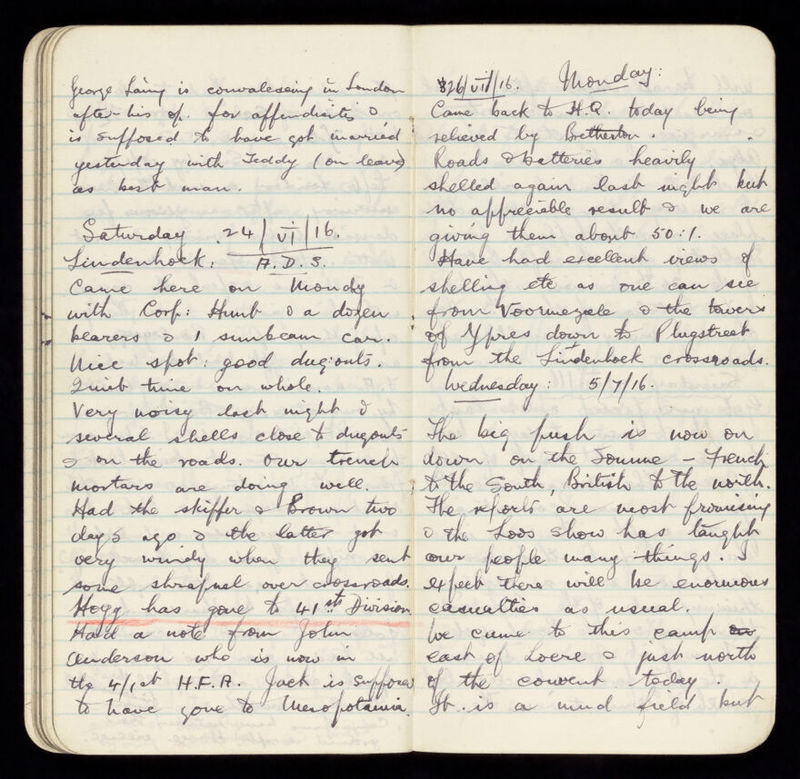 George Laing is convalescing in London
after his op. for appendisitis &
is supposed to have got married
yesterday with Teddy (on leave)
as best man.
Saturday 24/VI/16.
Lindenhoek: A.D.S.
Came here on Monday
with Corp: Hunt & a dozen
bearers & 1 sunbeam car.
Nice spot: good dug-outs.
Quiet time on whole.
Very noisy last night &
several shells close to dugouts
& on the roads. Our trench
mortars are doing well.
Had the skipper & Brown two
days ago & the latter got
very windy when they sent
some shrapnel over crossroads.
Hogg has gone to 41st Division
Had a note from John
Anderson who is now in
the 4/1st H.F.A. Jack is supposed
to have gone to Mesopotamia.
26/VI/16. Monday:
Came back to H.Q. today being
relieved by Bretherton.
Roads & batteries heavily
shelled again last night but
no appreciable result & we are
giving them about 50:1.
Have had excellent views of
shelling etc as one can see
from Voormezele & the towers
of Ypres down to Plugstreet
from the Lindenhoek crossroads.
Wednesday: 5/7/16.
The big push is now on
down on the Somme – French
to the South, British to the north.
The reports are most promising
& the Loos show has taught
our people many things. I
expect there will be enormous
casualties as usual.
We came to this camp
east of Locre & just north
of the convent today.
It is a mud field but